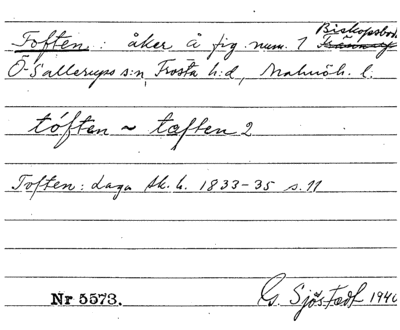 Toften: åker å fig num. 1 Biskopsbod
Ö. Sallerups s:n, Frosta h:d, Malmöh. l.
tóften ~ tæften 2
Toften: Laga sk. h. 1833-35 s. 11
Nr 5573. G. Sjöstedt 1940